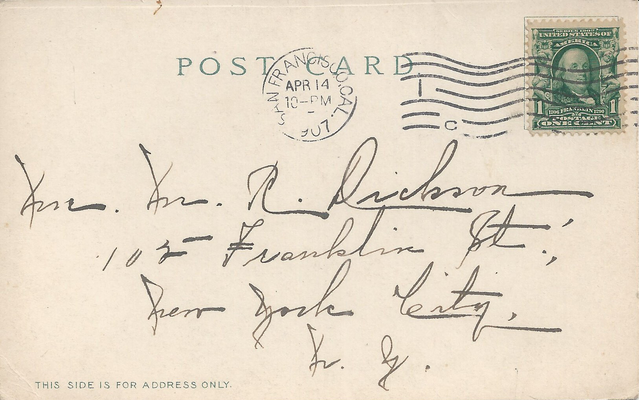 POST CARD
SAN FRANCISCO, CAL.
APR 14
10-PM
1907
C
SERIES 1902
UNITED STATES OF
AMERICA
1 FRANKLIN 1
POSTAGE
ONE CENT
Wm. R. Dickson
105 Franklin St.,
New York City,
N. Y.
THIS SIDE IS FOR ADDRESS ONLY.